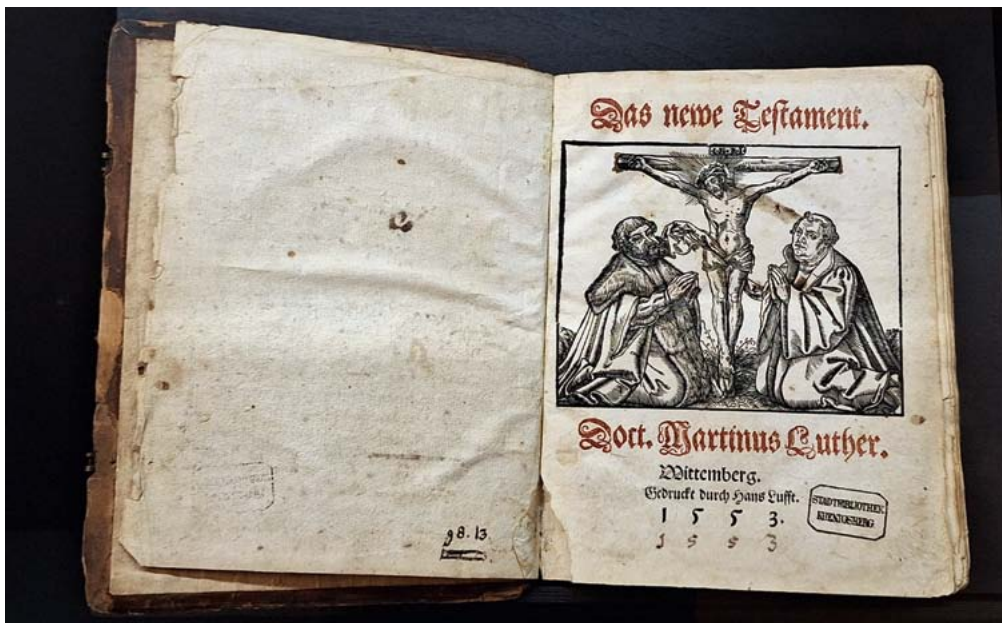 98.13
Das newe Testament.
Doct. Martinus Luther.
Wittemberg.
Gedruckt durch Hans Lufft.
1 5 5 3.
1 5 5 3
STADTBIBLIOTHEK
KOENIGSBERG